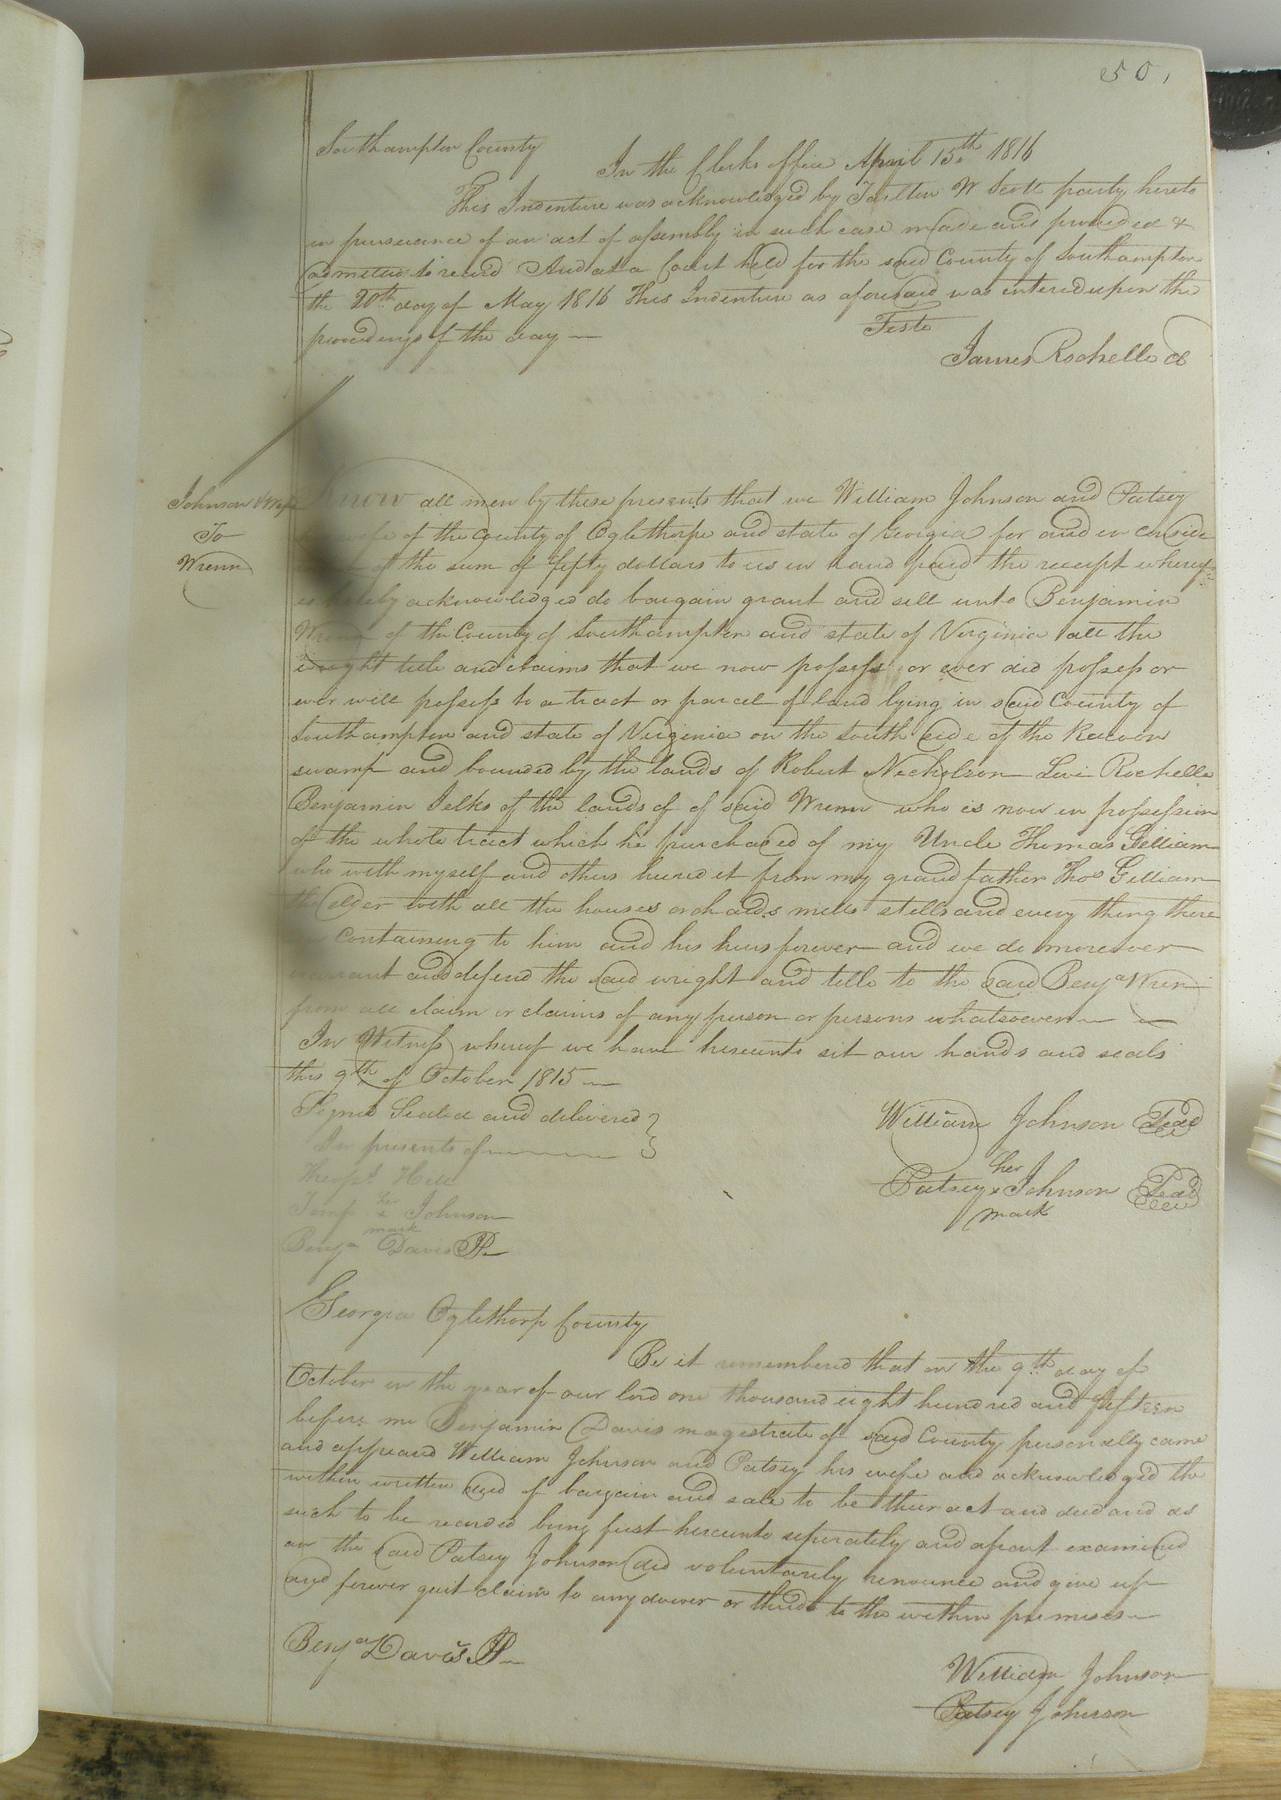 501
Southampton County
In the Clerks office April 15th 1816
This Indenture was acknowledged by Tarlton W Scott party hereto
in pursuance of an act of assembly in such case made and provided &
admitted to record And at a Court held for the said County of Southampton
the 20th day of May 1816 This Indenture as aforesaid was entered upon the
proceedings of the day —
Teste
James Rochelle Cl
Johnson & Wife
To
Wrenn
Know all men by these presents that we William Johnson and Patsey
wife of the County of Oglethorpe and state of Georgia for and in conside
of the sum of fifty dollars to us in hand paid the receipt whereof
is hereby acknowledged do bargain grant and sell unto Benjamin
Wrenn of the County of Southampton and state of Virginia all the
wright title and claims that we now possess or ever did possess or
ever will possess to a tract or parcel of land lying in said County of
Southampton and state of Virginia on the south side of the Racoon
swamp and bounded by the lands of Robert Nicholson Levi Rochelle
Benjamin Jelks of the lands of of said Wrenn who is now in possession
of the whole tract which he purchased of my Uncle Thomas Gilliam
who with myself and others heired it from my grandfather Thos Gilliam
the elder with all the houses orchards mills stills and every thing there
containing to him and his heirs forever and we do moreover
warrant and defend the said wright and title to the said Benja Wren
from all claim or claims of any person or persons whatsoever —
In Witness whereof we have hereunto sit our hands and seals
this 9th of October 1815 —
Signed Sealed and delivered }
In presents of — }
William Johnson Seal
Hill
her
Patsey x Johnson Seal
mark
Temp her x Johnson
mark
Benja Davis JP
Georgia Oglethorp County
Be it remembered that on the 9th day of
October in the year of our lord one thousand eight hundred and fifteen
before me Benjamin Davis magistrate of said County personally came
and appeard William Johnson and Patsey his wife and acknowledged the
within written deed of bargain and sale to be their act and deed and as
such to be recorded being first hereunto seperately and apart examined
an the said Patsey Johnson did voluntarily renounce and give up
and forever quit claim to any dower or thirds to the within premises —
Benja Davis JP
William Johnson
Patsey Johnson